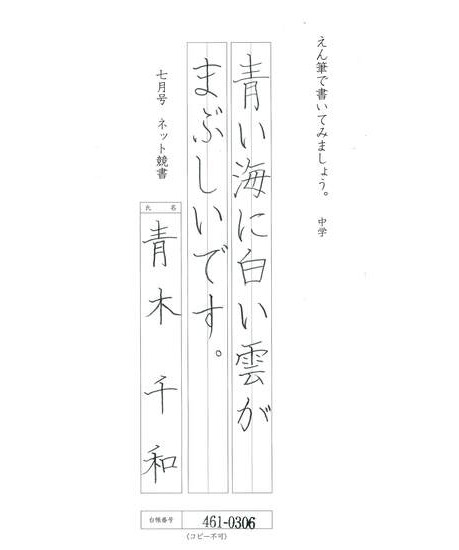 えん筆で書いてみましょう。 中学
青い海に白い雲が
まぶしいです。
七月号 ネット競書
氏名
青木千和
台帳番号 461-0306
(コピー不可)